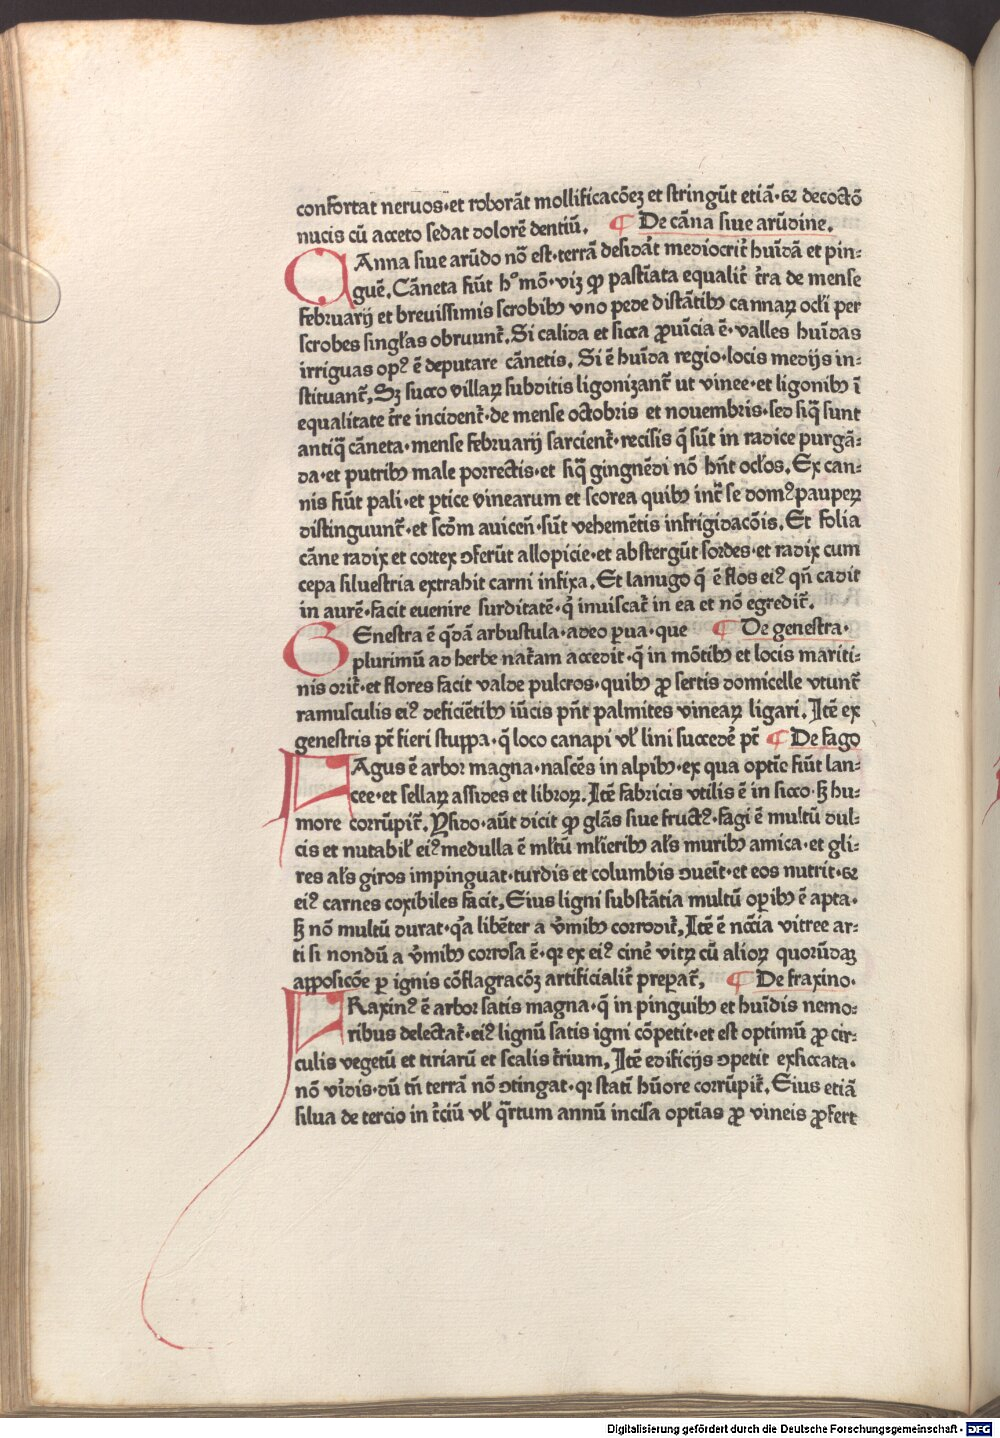 confortat neruos·et roborāt mollificacōeꝫ et stringūt etiā·⁊ decoctō
nucis cū acceto sedat dolorē dentiū. ¶ De cāna siue arūdine.
CAnna siue arūdo nō est·terrā desidāt mediocrit̄ huīdā et pin⸗
guē. Cāneta fiūt h° mō·viꝫ ꝙ pastīata equalit̄ t̄ra de mense
februarij et breuissimis scrobibꝫ vno pede distātibꝫ cannaꝝ ocl̄i per
scrobes singl̄as obruunt̄. Si calida et sicca ꝓuīcia ē·valles huīdas
irriguas opꝰ ē deputare cānetis. Si ē huīda regio·locis medijs in⸗
stituant̄, Sꝫ succo villaꝝ subditis ligonizant̄ ut vinee·et ligonibꝫ ī
equalitate t̄re incident̄·de mense octobris et nouembris·sed siq̄ sunt
antiq̄ cāneta·mense februarij sarcient̄·recisis q̄ sūt in radice purgā⸗
da·et putribꝫ male porrectis·et siq̄ gingnēdi nō hn̄t ocl̄os. Ex can⸗
nis fiūt pali·et ꝑtice vinearum et scorea quibꝫ int̄ se domꝰ pauperꝝ
distinguunt̄·et scd̄m auicen̄·sūt vehemētis infrigidacōis. Et folia
cāne radix et cortex ꝯferūt allopicie·et abstergūt sordes·et radix cum
cepa siluestria extrahit carni infixa. Et lanugo q̄ ē flos eiꝰ qn̄ cadit
in aurē·facit euenire surditatē·q̄ inuiscat̄ in ea et nō egredit̄.
GEnestra ē q̄dā arbustula·adeo ꝑua·que ¶ De genestra·
plurimū ad herbe nat̄am accedit·q̄ in mōtibꝫ et locis mariti⸗
nis orit̄·et flores facit valde pulcros·quibꝫ ꝓ sertis domicelle vtunt̄
ramusculis eiꝰ deficiētibꝫ iūcis pn̄t palmites vineaꝝ ligari. Itē ex
genestris pt̄ fieri stuppa·q̄ loco canapi vl̄ lini succedē pt̄ ¶ De fago
FAgus ē arbor magna·nascēs in alpibꝫ·ex qua optīe fiūt lan⸗
cee·et sellaꝝ assides et libroꝝ. Itē fabricis vtilis ē in sicco·sꝫ hu⸗
more corrūpit̄. Ysido·aūt dicit ꝙ glās siue fructꝰ·fagi ē multū dul⸗
cis et nutabil̄ eiꝰ medulla ē ml̄tū ml̄ieribꝫ al̄s muribꝫ amica·et gli⸗
res al̄s giros impinguat·turdis et columbis ꝯueīt·et eos nutrit·⁊
eiꝰ carnes coxibiles facit, Eius ligni substātia multū oꝑibꝫ ē apta·
sꝫ nō multū durat·q̄a libēter a v̄mibꝫ corrodit̄, Itē ē nc̄cīa vitree ar⸗
ti si nondū a v̄mibꝫ corrosa ē·qꝛ ex eiꝰ cinē vitꝝ cū alioꝝ quorūdaꝫ
appōsicōe ꝑ ignis cōflagracōꝫ artificialit̄ preparat̄, ¶ De fraxino·
FRaxinꝰ ē arbor satis magna·q̄ in pinguibꝫ et huīdis nemo⸗
ribus delectat̄·eiꝰ lignū satis igni cōpetit·et est optimū ꝓ cir⸗
culis vegetū et tiriarū et scalis t̄rium, Itē edificijs ꝯpetit exsiccata·
nō vīdis·dū tn̄ terrā nō ꝯtingat·qꝛ statī hūore corrūpit̄. Eius etiā
silua de tercio in t̄ciū vl̄ q̄rtum annū incisa optīas ꝓ vineis ꝓfert
Digitalisierung gefördert durch die Deutsche Forschungsgemeinschaft - DFG